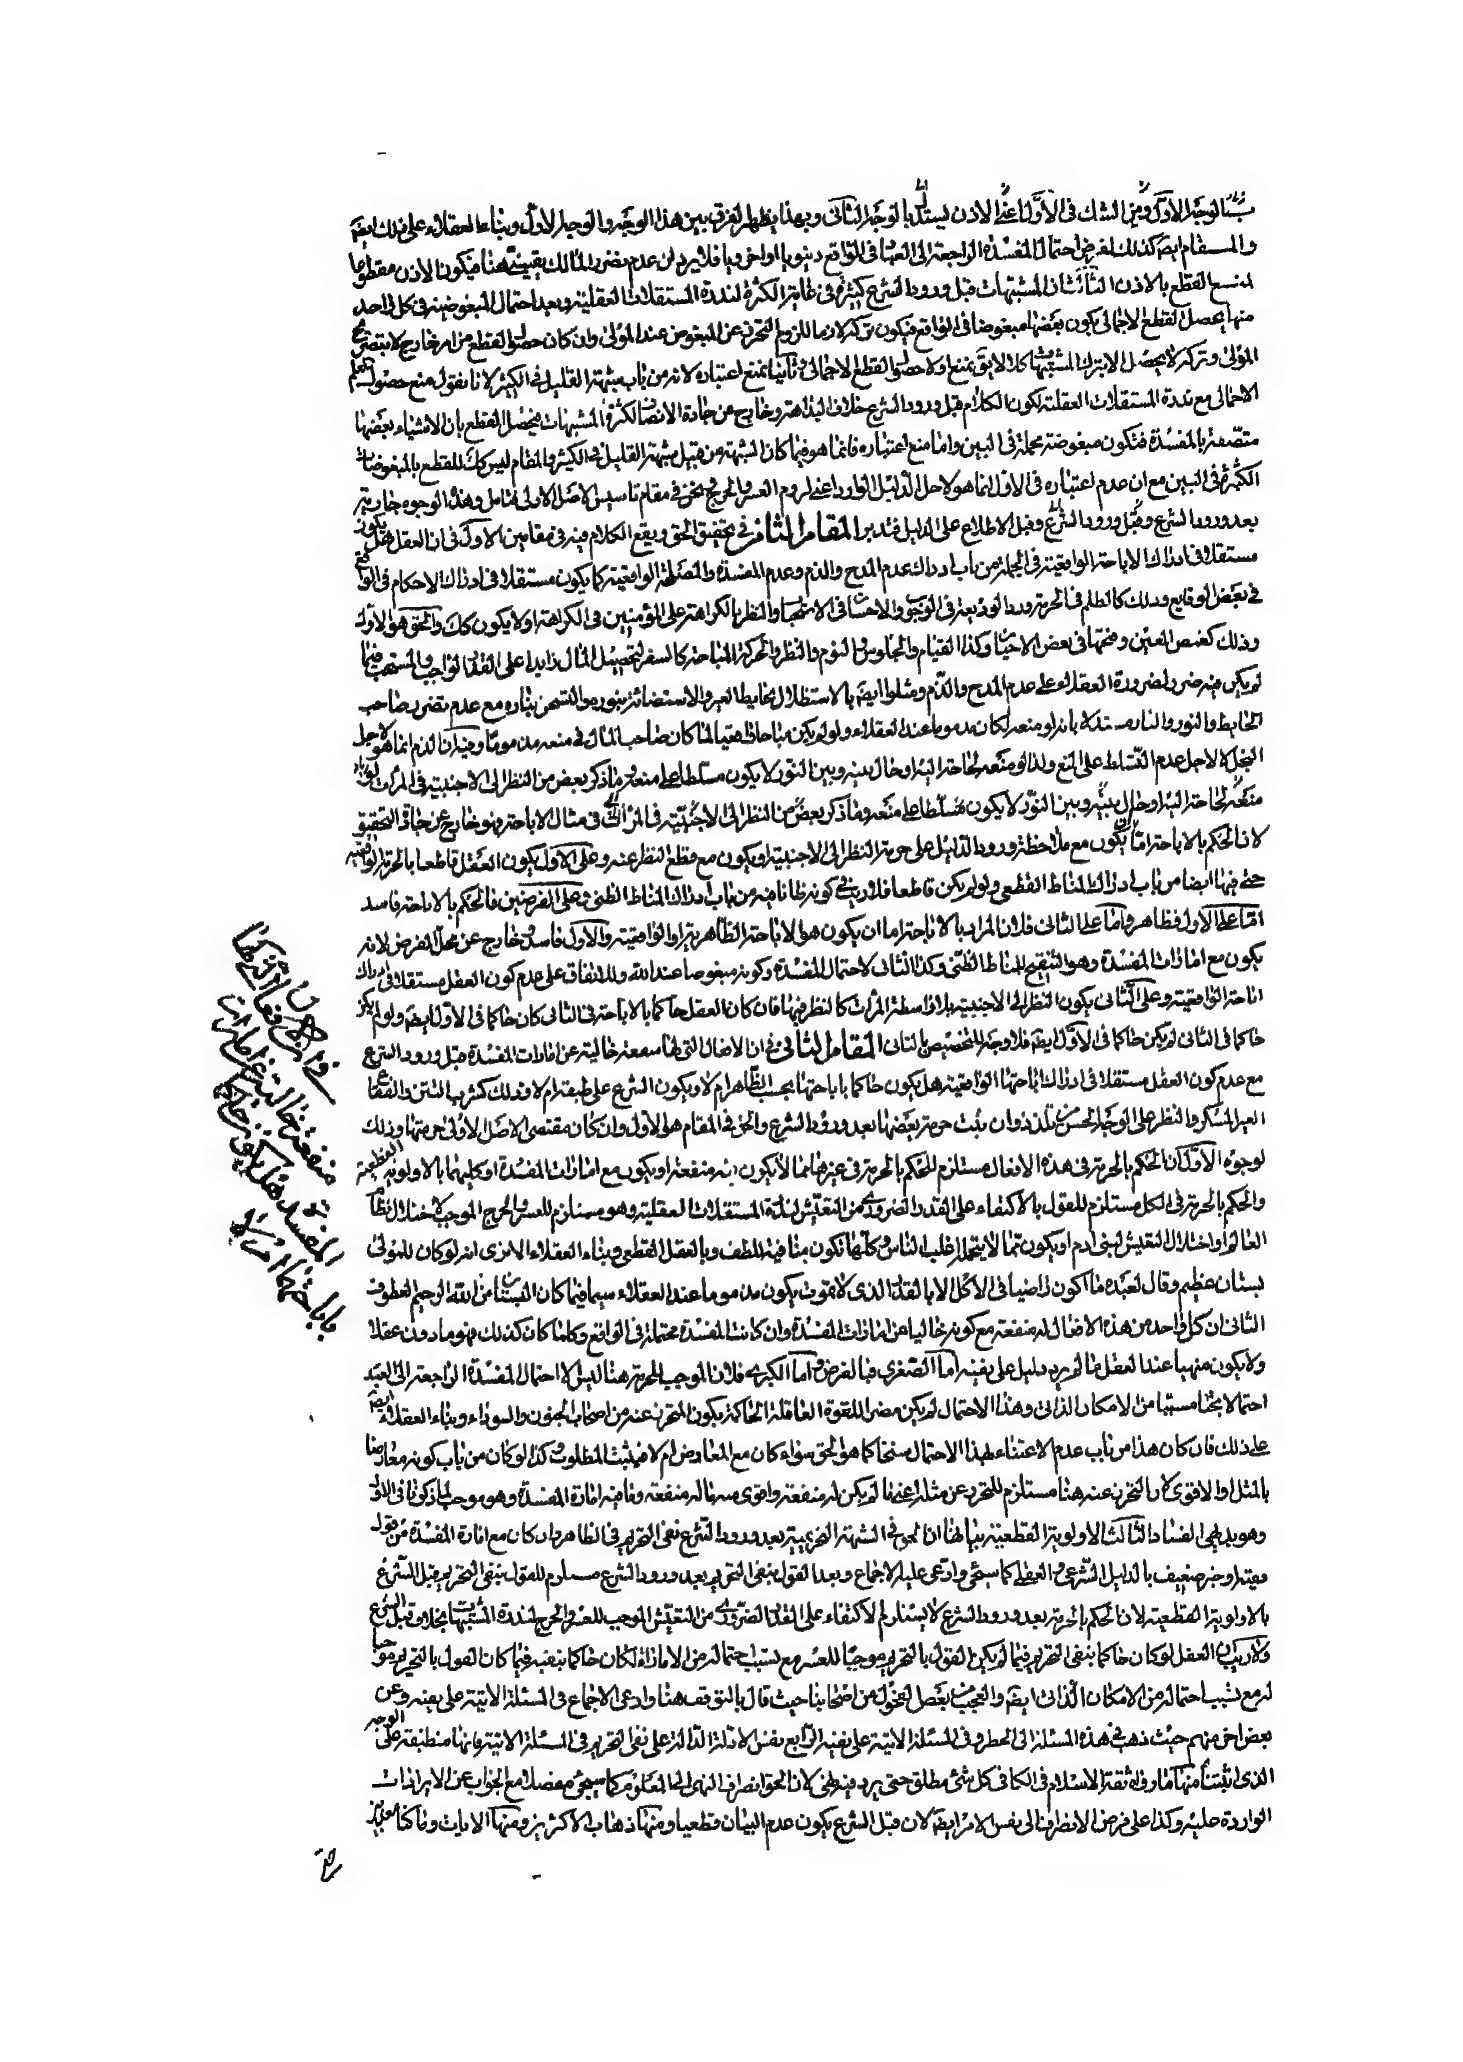 الوجه الاول ومن الشك في الاول اعنى الاذن يستدل بالوجه الثاني وبهذا يظهر الفرق بين هذا الوجه والوجه الاول وبناء العقلاء على ذلك ايضا
والمقام ايضا كذلك لفرض احتمال المفسدة الراجعة الى العبد في الواقع دنيويا او اخرويا فلا يرد ان عدم تضرر المالك يقيني هنا فيكون الاذن مقطوعا
لمنع القطع بالاذن الثالث ان المشتبهات قبل ورود الشرع كثيرة في غاية الكثرة لندرة المستقلات العقلية وبعد احتمال المبغوضية في كل واحد
منها يحصل القطع الاجمالي بكون بعضها مبغوضا في الواقع فيكون تركه لازما للزوم التحرز عن المبغوض عند المولى وان كان حصول القطع من امر خارج لا بتصريح
المولى وتركه لا يحصل الا بترك المشتبهات كلا لا يق يمنع اولا حصول القطع الاجمالي وثانيا يمنع اعتباره لانه من باب شبهة القليل في الكثير لانا نقول منع حصول العلم
الاجمالي مع ندرة المستقلات العقلية لكون الكلام قبل ورود الشرع خلاف البداهة وخارج عن جادة الانصاف لكثرة المشتبهات فيحصل القطع بان الاشياء بعضها
متصفة بالمفسدة فتكون مبغوضة مجملة في البين واما منع اعتباره فانما هو فيما كان الشبهة من قبيل شبهة القليل في الكثير والمقام ليس كك للقطع بالمبغوضات
الكثيرة في البين مع ان عدم اعتباره في الاول انما هو لاجل الدليل الوارد اعنى لزوم العسر والحرج ونحن في مقام تاسيس الاصل الاولى فتامل وهذه الوجوه جارية
بعد ورود الشرع وقبل ورود الشرع وقبل الاطلاع على الدليل فتدبر المقام الثاني في تحقيق الحق ويقع الكلام فيه في مقامين الاول في ان العقل هل يكون
مستقلا في ادراك الاباحة الواقعية في الجملة من باب ادراك عدم المدح والذم وعدم المفسدة والمصلحة الواقعية كما يكون مستقلا في ادراك الاحكام في الواقع
في بعض الوقايع وذلك كالظلم في الحرمة ورد الوديعة في الوجوب والاحسان في الاستحباب والنظر بالكراهة على المؤمنين في الكراهة او لا يكون كك والحق هو الاول
وذلك كغمض العين وفتحها في بعض الاحيان وكذا القيام والجلوس والنوم والنظر والحركة المباحة كالسفر لتحصيل المال زايدا على القدر الواجب والمستحب فيما
لم يكن فيه ضرر لضرورة العقلاء على عدم المدح والذم ومثلوا ايضا بالاستظلال بحايط الغير والاستضائة بنوره والتسخن بناره مع عدم تضرر صاحب
الحايط والنور والنار مستدلا بانه لو منعه لكان مذموما عند العقلاء ولو لم يكن مباحا واقعيا لما كان صاحب المال في منعه مذموما وفيه ان الذم انما هو لاجل
البخل لا لاجل عدم التسلط على المنع ولذا لو منعه لحاجة اليه او حال بينه وبين النور لا يكون مسلطا على منعه وما ذكر بعض من النظر الى الاجنبية في المرات
منعه لحاجة اليه او حال بينه وبين النور لا يكون مسلطا على منعه وما ذكر بعض من النظر الى الاجنبية في المرات في مثال الاباحة فهو خارج عن جادة التحقيق
لان الحكم بالاباحة اما يكون مع ملاحظة ورود الدليل على حرمة النظر الى الاجنبية او يكون مع قطع النظر عنه وعلى الاول يكون العقل قاطعا بالحرمة الواقعية
حتى فيها ايضا من باب ادراك المناط القطعى ولو لم يكن قاطعا فلا ريب في كونه ظانا فيه من باب ادراك المناط الظنى وعلى الفرضين فالحكم بالاباحة فاسد
اما على الاول فظاهر واما على الثاني فلان المراد بالاباحة اما ان يكون هو الاباحة الظاهرية او الواقعية والاول فاسد وخارج عن محل الفرض لانه
يكون مع امارات المفسدة وهو التنقيح المناط الظنى وكذا الثاني لاحتمال المفسدة وكونه مبغوضا عند الله وللاتفاق على عدم كون العقل مستقلا في ادراك
اباحة الواقعية وعلى الثاني يكون النظر الى الاجنبية بلا واسطة المرات كالنظر فيها فان كان العقل حاكما بالاباحة في الثاني كان حاكما في الاول ايضا ولو لم يكن
حاكما في الثاني لم يكن حاكما في الاول ايضا فلا وجه للتخصيص بالثاني المقام الثاني في ان الافعال التي لها منفعة خالية عن امارات المفسدة قبل ورود الشرع
مع عدم كون العقل مستقلا في ادراك اباحتها الواقعية هل يكون حاكما باباحتها بحسب الظاهر ام لا ويكون الشرع على طبقه ام لا وذلك كشرب التتن والفقاع
الغير المسكر والنظر على الوجه الحسن بلا تلذذ وان ثبت حرمة بعضها بعد ورود الشرع والحق في المقام هو الاول وان كان مقتضى الاصل الاولى حرمتها وذلك
لوجوه الاول ان الحكم بالحرمة في هذه الافعال مستلزم للحكم بالحرمة في غيرها مما لا يكون فيه منفعة او يكون مع امارات المفسدة او كليهما بالاولوية القطعية
والحكم بالحرمة في الكل مستلزم للقول بالاكتفاء على القدر الضروري من التعيش لندرة المستقلات العقلية وهو مستلزم للعسر والحرج الموجب لاختلال نظام
العالم او اختلال التعيش لبنى ادم او يكون مما لا يتحمله اغلب الناس وكلها تكون منافية للطف وبالعقل القطعى وبناء العقلاء الا ترى انه لو كان للمولى
بستان عظيم وقال لعبده ما اكون راضيا في الاكل الا بالقدر الذي لا تموت يكون مذموما عند العقلاء سيما فيما كان البستان من الله الرحيم العطوف
الثاني ان كل واحد من هذه الافعال له منفعة مع كونه خاليا من امارات المفسدة وان كانت المفسدة محتملة في الواقع وكلما كان كذلك فهو ماذون عقلا
ولا يكون منهيا عند العقل ما لم يرد دليل على نفيه اما الصغرى فبالفرض واما الكبرى فلان الموجب للحرمة هنا ليس الا احتمال المفسدة الراجعة الى العبد
احتمالا بحتا مسببا من الامكان الذاتى وهذا الاحتمال لم يكن مضرا للقوة العاقلة الحاكمة بكون المتحرز عنه من اصحاب الجنون والسوداء وبناء العقلاء ايضا
على ذلك فان كان هذا من باب عدم الاعتناء بهذا الاحتمال سنخا كما هو الحق سواء كان مع المعارض ام لا فيثبت المطلوب وكذا لو كان من باب كونه معارضا
بالمثل او الاقوى لان التحرز عنه هنا مستلزم للتحرز عن مثله اعنى ما لم يكن له منفعة واقوى منه ما له منفعة وفيه امارة المفسدة وهو موجب لما ذكرنا في الاول
وهو بديهى الفساد الثالث الاولوية القطعية بيانها ان الحق في الشبهة التحريمية بعد ورود الشرع نفى التحريم في الظاهر وان كان مع امارة المفسدة من قول
فقيه او خبر ضعيف بالدليل الشرعى والعقلى كما سيجئ وادعى عليه الاجماع وبعد القول بنفى التحريم بعد ورود الشرع مستلزم للقول بنفى التحريم قبل الشرع
بالاولوية القطعية لان الحكم بالحرمة بعد ورود الشرع لا يستلزم الاكتفاء على القدر الضروري من التعيش الموجب للعسر والحرج لندرة المشتبهات بخلاف قبل الشرع
ولا ريب ان العقل لو كان حاكما بنفى التحريم فيما لم يكن القول بالتحريم موجبا للعسر مع تسبب احتماله من الامارة لكان حاكما بنفيه فيما كان القول بالتحريم موجبا
له مع تسبب احتماله من الامكان الذاتى ايضا والعجب من بعض الفحول من اصحابنا حيث قال بالتوقف هنا وادعى الاجماع في المسئلة الاتية على نفيه وعن
بعض اخر منهم حيث ذهب في هذه المسئلة الى الحظر وفي المسئلة الاتية على نفيه الرابع نفس الادلة الدالة على نفى التحريم في المسئلة الاتية فانها منطبقة على الوجه
الذي اثبتنا منها ما رواه ثقة الاسلام في الكافي كل شئ مطلق حتى يرد فيه نهى لان الحق انصراف النهى الى المعلوم كما سيجئ مفصلا مع الجواب عن الايرادات
الواردة عليه وكذا على فرض الانصراف الى نفس الامر ايضا لان قبل الشرع يكون عدم البيان قطعيا ومنها ذهاب الاكثر ومنها الايات وما كنا معذبين
منفعة خالية عن امارات
المفسدة هل يكون حاكما
باباحتها ام لا